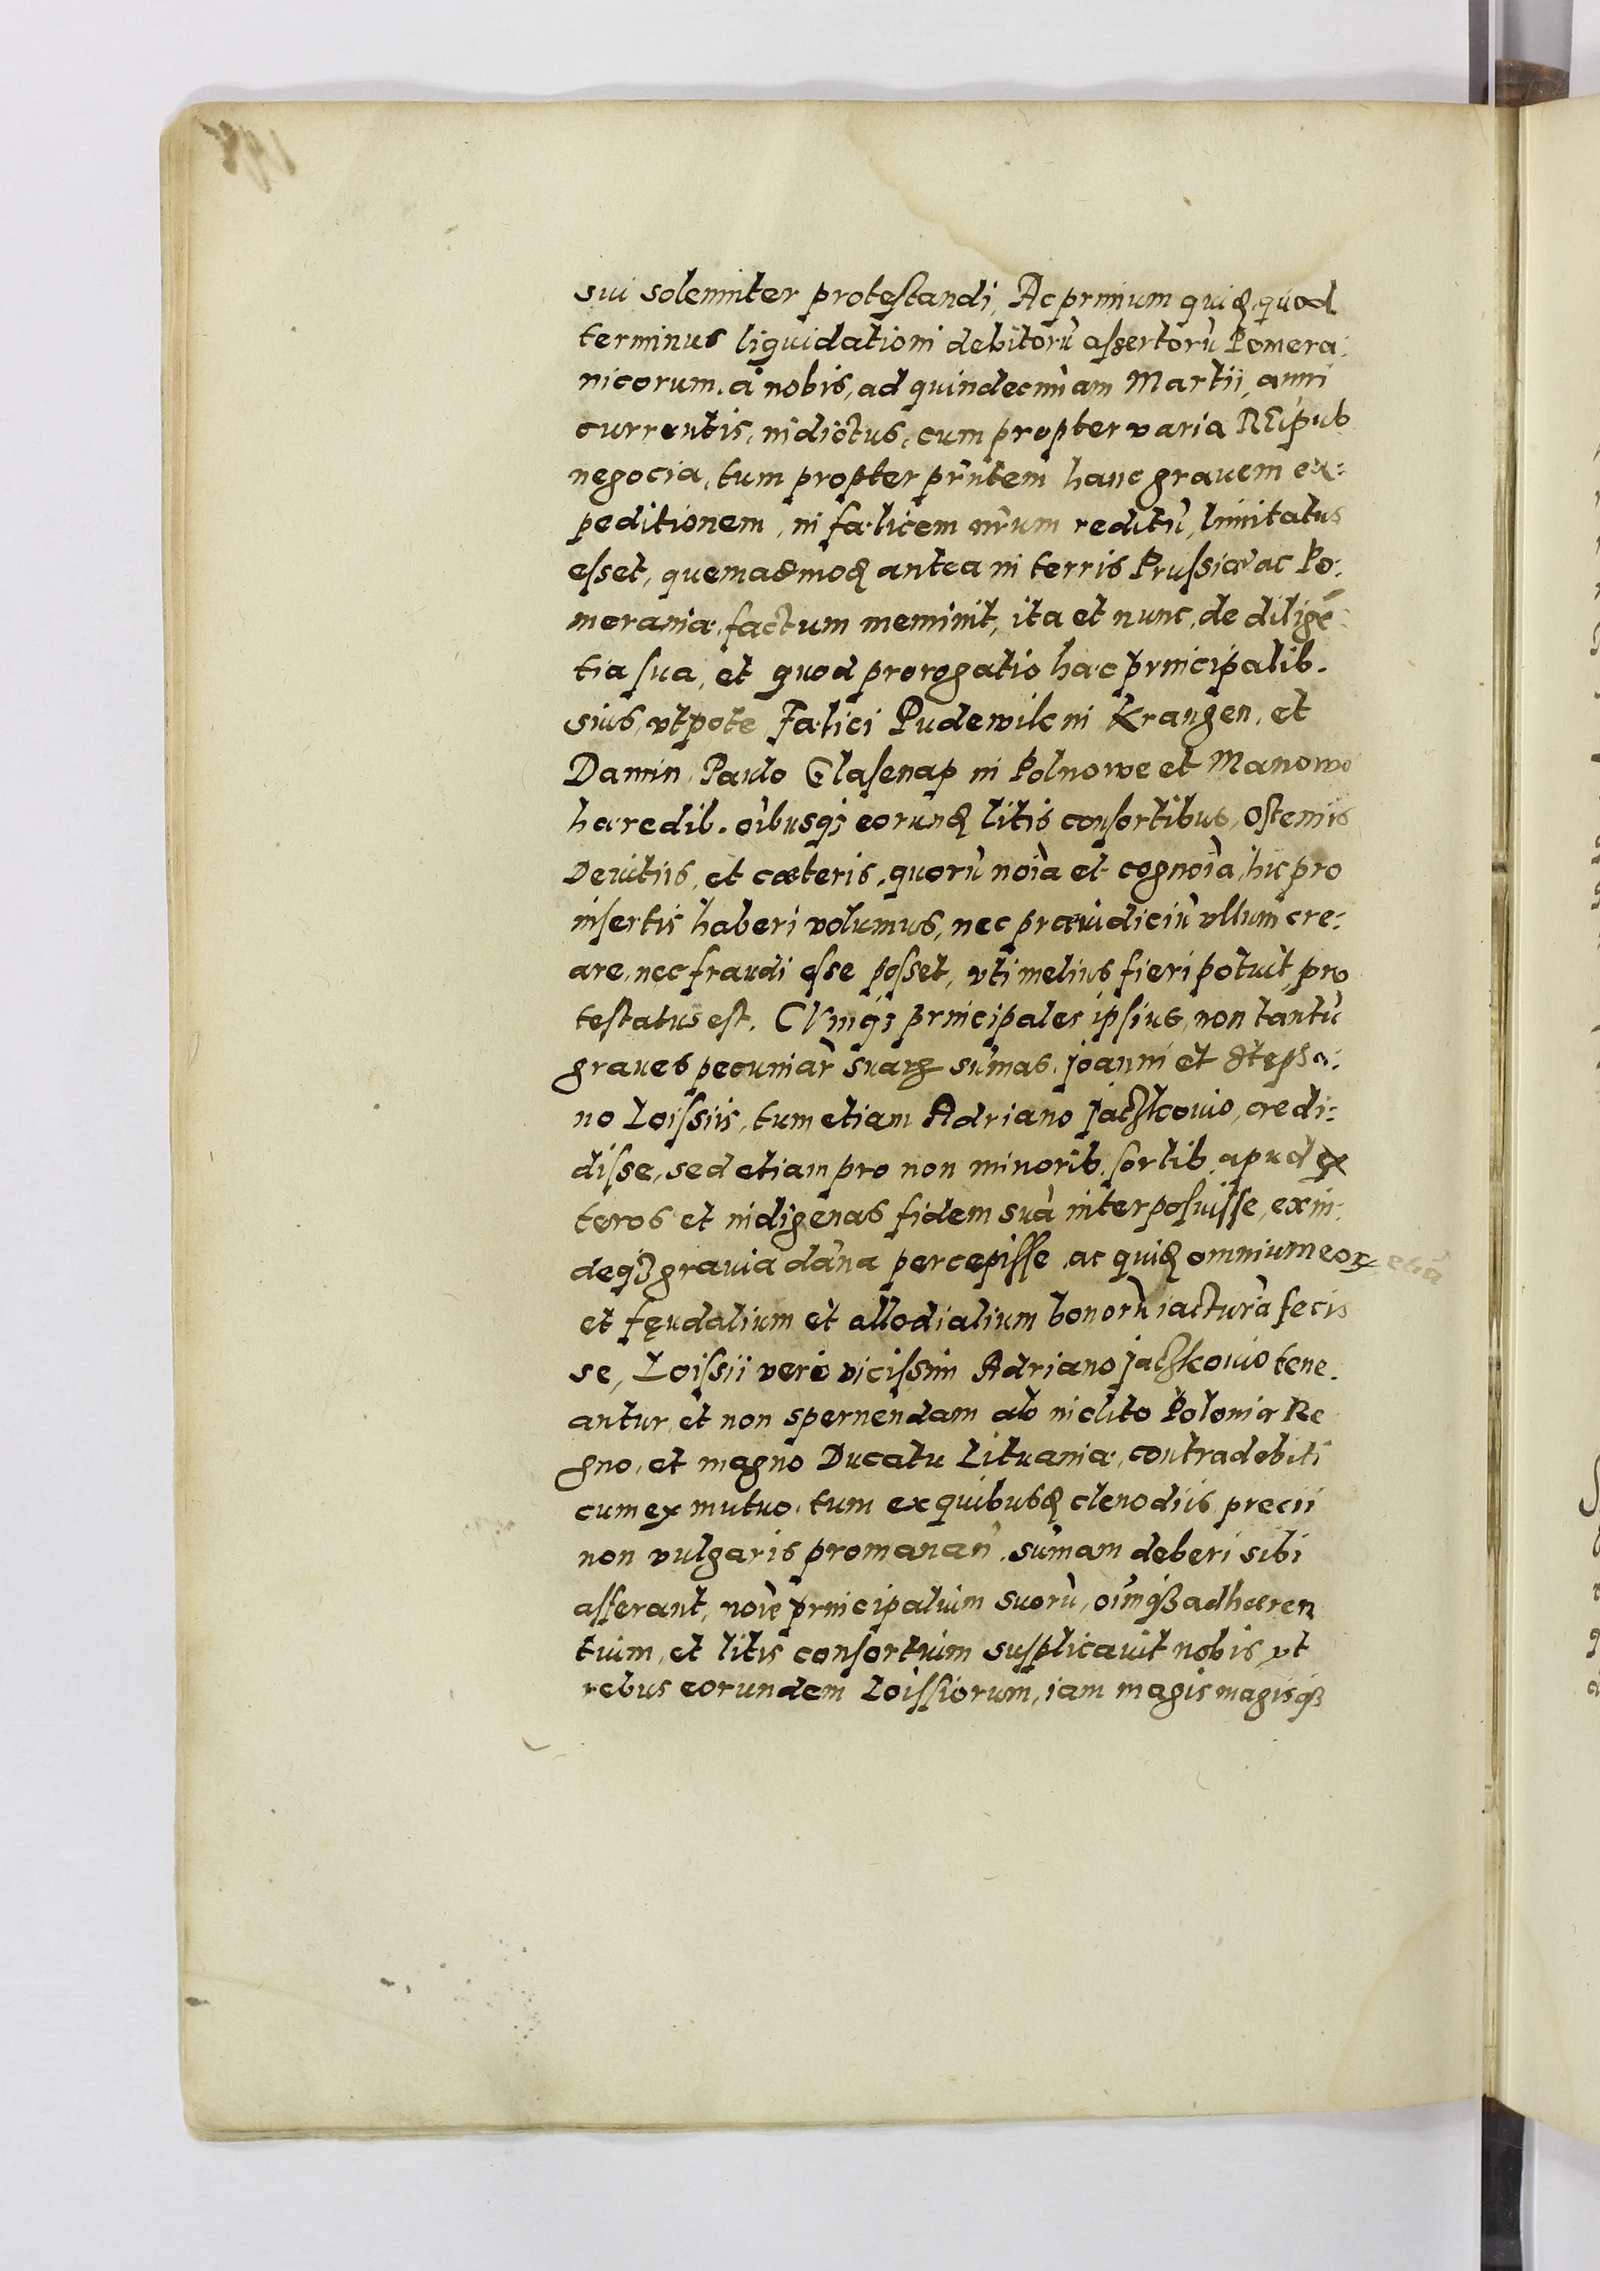 sui solemniter protestandi, Ac primum quiđ, quod
terminus liquidationi debitorũ assertorũ Pomera:
nicorum, à nobis, ad quindecimam Martii, anni
currentis, indictus, cum propter varia REipub
negocia, tum propter prñtem hanc grauem ex:
peditionem, in fælicem nr̃um reditũ, limitatus
esset, quemadmođ antea in terris Prussiæ ac Po:
merania factum meminit, ita et nunc, de diligẽ:
tia sua, et quod prorogatio hæc principalib.
suis, vtpote Fælici Pudewilc in Krangen, et
Damin, Paulo Glasenap in Polnowe et Manowo
hæredib. oĩbusq; eorunđ litis consortibus, Osteniis
Deuitiis, et cæteris, quorũ noĩa et cognoĩa, hic pro
insertis haberi volumus, nec præiudiciũ vllum cre:
are, nec fraudi esse posset, vti melius fieri potuit, pro
testatus est. CVmq; principales ipsius, non tantũ
graues pecuniar̃ suarꝝ sum̃as, Joanni et Stepha:
no Loissiis, tum etiam Adriano Jaczkouio, credi:
disse, sed etiam pro non minorib. sortib. apud ex
teros et indigenas fidem suã interposuisse, exin:
deqꝫ grauia dam̃na percepisse, ac quiđ omnium eoꝝ etiã
et fęudalium et allodialium bonorũ iacturã fecis
se, Loissii vero vicissim Adriano Jaczkouio tene:
antur, et non spernendam ab inclito Poloniæ Re
gno, et magno Ducatu Lituaniæ, contra debiti
cum ex mutuo, tum ex quibusđ clenodiis precii
non vulgaris promanañ. sum̃am deberi sibi
asserant, noĩe principalium suorũ, oĩmqꝫ adhæren
tium, et litis consortium supplicauit nobis, vt
rebus eorundem Loissiorum, iam magis magisqꝫ